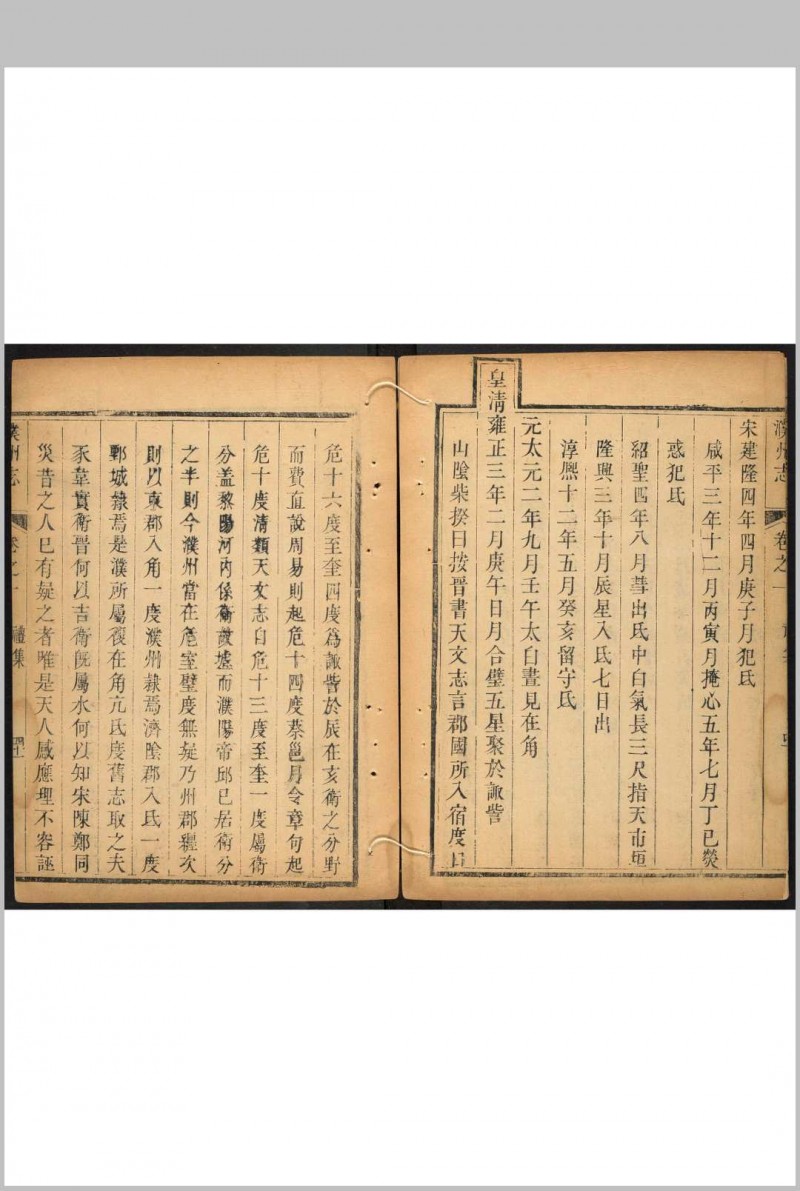 濮州志
卷之一
宋建隆四年四月庚子月犯氐
咸平三年十二月丙寅月掩心五年七月丁巳熒
惑犯氐
紹聖四年八月彗出氐中白氣長三尺指天市垣
隆興三年十月辰星入氐七日出
淳熈十二年五月癸亥留守氐
元太元二年九月壬午太白晝見在角
皇清雍正三年二月庚午日月合璧五星聚於諏訾
山陰柴揆曰按晉書天文志言郡國所入宿度自
危十六度至奎四度爲諏訾於辰在亥衛之分野
而費直說周易則起危十四度蔡邕月令章句起
危十度清類天文志自危十三度至奎一度屬衛
分盖黎陽河內係衛故墟而濮陽帝邱已居衛分
之半則今濮州當在危室壁度無疑乃州郡躔次
則以東郡入角一度濮州隸焉濟陰郡入氐一度
鄄城隸焉是濮所屬復在角亢氐度舊志取之夫
豕韋實衛晉何以吉衛旣屬水何以知宋陳鄭同
災昔之人已有疑之者唯是天人感應理不容誣
濮州志
卷之一
禮集